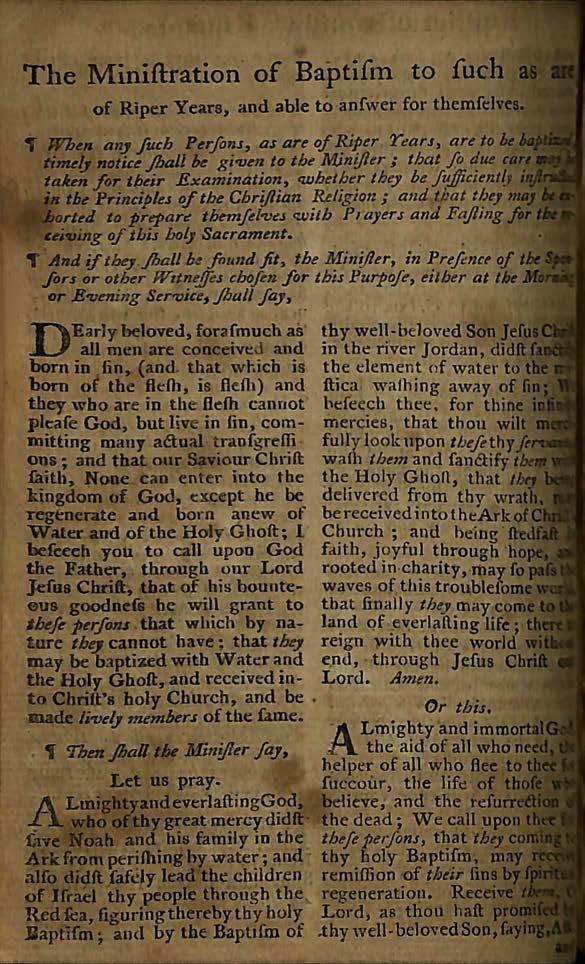 The Miniſtration of Baptiſm to ſuch as are
of Riper Years, and able to anſwer for themſelves.
¶ When any ſuch Perſons, as are of Riper Years, are to be baptized,
timely notice ſhall be given to the Miniſter ; that ſo due care may be
taken for their Examination, whether they be ſufficiently inſtructed
in the Principles of the Chriſtian Religion ; and that they may be ex-
horted to prepare themſelves with Prayers and Faſting for the re-
ceiving of this holy Sacrament.
¶ And if they ſhall be found fit, the Miniſter, in Preſence of the Spon-
ſors or other Witneſſes choſen for this Purpoſe, either at the Morning
or Evening Service, ſhall ſay,
DEarly beloved, foraſmuch as
all men are conceived and
born in ſin, (and that which is
born of the fleſh, is fleſh) and
they who are in the fleſh cannot
pleaſe God, but live in ſin, com-
mitting many actual tranſgreſſi
ons ; and that our Saviour Chriſt
ſaith, None can enter into the
kingdom of God, except he be
regenerate and born anew of
Water and of the Holy Ghoſt; I
beſeech you to call upon God
the Father, through our Lord
Jeſus Chriſt, that of his bounte-
ous goodneſs he will grant to
theſe perſons that which by na-
ture they cannot have ; that they
may be baptized with Water and
the Holy Ghoſt, and received in-
to Chriſt's holy Church, and be
made lively members of the ſame.
¶ Then ſhall the Miniſter ſay,
Let us pray.
ALmighty and everlaſting God,
who of thy great mercy didſt
ſave Noah and his family in the
Ark from periſhing by water ; and
alſo didſt ſafely lead the children
of Iſrael thy people through the
Red ſea, figuring thereby thy holy
Baptiſm ; and by the Baptiſm of
thy well-beloved Son Jeſus Chriſt
in the river Jordan, didſt ſanctify
the element of water to the
ſtical waſhing away of ſin ; We
beſeech thee, for thine infinite
mercies, that thou wilt merci-
fully look upon theſe thy ſervants
waſh them and ſanctify them with
the Holy Ghoſt, that they being
delivered from thy wrath, may
be received into the Ark of Chriſt's
Church ; and being ſtedfaſt in
faith, joyful through hope, and
rooted in charity, may ſo paſs the
waves of this troubleſome world
that finally they may come to the
land of everlaſting life ; there to
reign with thee world without
end, through Jeſus Chriſt our
Lord. Amen.
Or this.
ALmighty and immortal God,
the aid of all who need, the
helper of all who flee to thee for
ſuccour, the life of thoſe who
believe, and the reſurrection of
the dead ; We call upon thee for
theſe perſons, that they coming to
thy holy Baptiſm, may receive
remiſſion of their ſins by ſpiritual
regeneration. Receive them, O
Lord, as thou haſt promiſed by
thy well-beloved Son, ſaying, Aſk